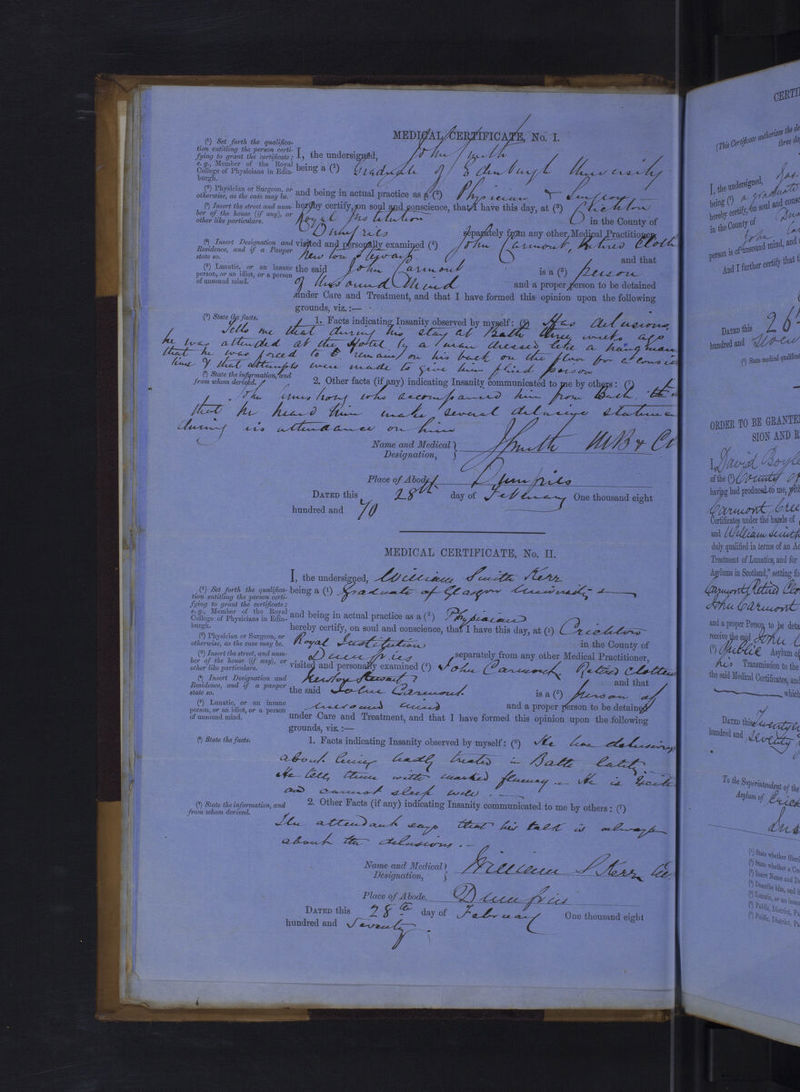 MEDICAL CERTIFICATE, No. I.
(¹) Set forth the qualification entitling the person certifying to grant the certificate; e. g., Member of the Royal College of Physicians in Edinburgh.
(²) Physician or Surgeon, or otherwise, as the case may be.
(³) Insert the street and number of the house (if any), or other like particulars.
(⁴) Insert Designation and Residence, and if a Pauper state so.
(⁵) Lunatic, or an insane person, or an idiot, or a person of unsound mind.
(⁶) State the facts.
(⁷) State the information, and from whom derived.
I, the undersigned, John Smith
being a (¹) Graduate of Edinburgh University
and being in actual practice as a (²) Physician & Surgeon
hereby certify, on soul and conscience, that I have this day, at (³) Crichton
Royal Institution in the County of
Dumfries separately from any other Medical Practitioner,
visited and personally examined (⁴) John Carmont, Retired Cloth
Newton Stewart and that
the said John Carmont is a (⁵) person
of Unsound Mind and a proper person to be detained
under Care and Treatment, and that I have formed this opinion upon the following
grounds, viz.:—
1. Facts indicating Insanity observed by myself: (⁶) Has delusions,
Tells me that during his stay at Bath three weeks ago
he was attended at the Hotel by a man dressed like a hangman
that he was forced to remain on his back on the floor for a
time & that attempts were made to give him
2. Other facts (if any) indicating Insanity communicated to me by others: (⁷)
John Armstrong who accompanied him from Bath
that he heard him make several delusive
during his attendance on him
Name and Medical Designation, J Smith MB &
Place of Abode, Dumfries
DATED this 28th day of February One thousand eight
hundred and 70
MEDICAL CERTIFICATE, No. II.
(¹) Set forth the qualification entitling the person certifying to grant the certificate; e. g., Member of the Royal College of Physicians in Edinburgh.
(²) Physician or Surgeon, or otherwise, as the case may be.
(³) Insert the street, and number of the house (if any), or other like particulars.
(⁴) Insert Designation and Residence, and if a pauper state so.
(⁵) Lunatic, or an insane person, or an idiot, or a person of unsound mind.
(⁶) State the facts.
(⁷) State the information, and from whom derived.
I, the undersigned, William Smith Kerr
being a (¹) Graduate of Glasgow University
and being in actual practice as a (²) Physician
hereby certify, on soul and conscience, that I have this day, at (³) Crichton
Royal Institution in the County of
Dumfries separately from any other Medical Practitioner,
visited and personally examined (⁴) John Carmont Retired Clother
Newton Stewart and that
the said John Carmont is a (⁵) person of
unsound mind and a proper person to be detained
under Care and Treatment, and that I have formed this opinion upon the following
grounds, viz.:—
1. Facts indicating Insanity observed by myself: (⁶) He has delusions
about being badly treated in Bath lately
He tells them with marked fluency. He is
and cannot sleep well
2. Other Facts (if any) indicating Insanity communicated to me by others: (⁷)
The attendant says that his talk is always
about the delusions.
Name and Medical Designation, William S Kerr
Place of Abode. Dumfries
DATED this 28th day of February One thousand eight
hundred and Seventy.
I, the undersigned,
hereby certify, on soul and
in the County of
person is of unsound mind, and
And I further certify that
DATED this 26
hundred and
ORDER TO BE GRANTE
SION AND R
I, David Boyle
of the County of
having had produced to me,
Carmont
Certificates under the hands of
and William Smith
duly qualified in terms of an Ac
Treatment of Lunatics, and for
Asylums in Scotland," setting fo
Carmont Retired
John Carmont
and a proper Person to be deta
receive the said John
Public Asylum of
his Transmission to the
the said Medical Certificates, and
which
DATED this twenty
hundred and Seventy
To the Superintendent of the
Asylum of